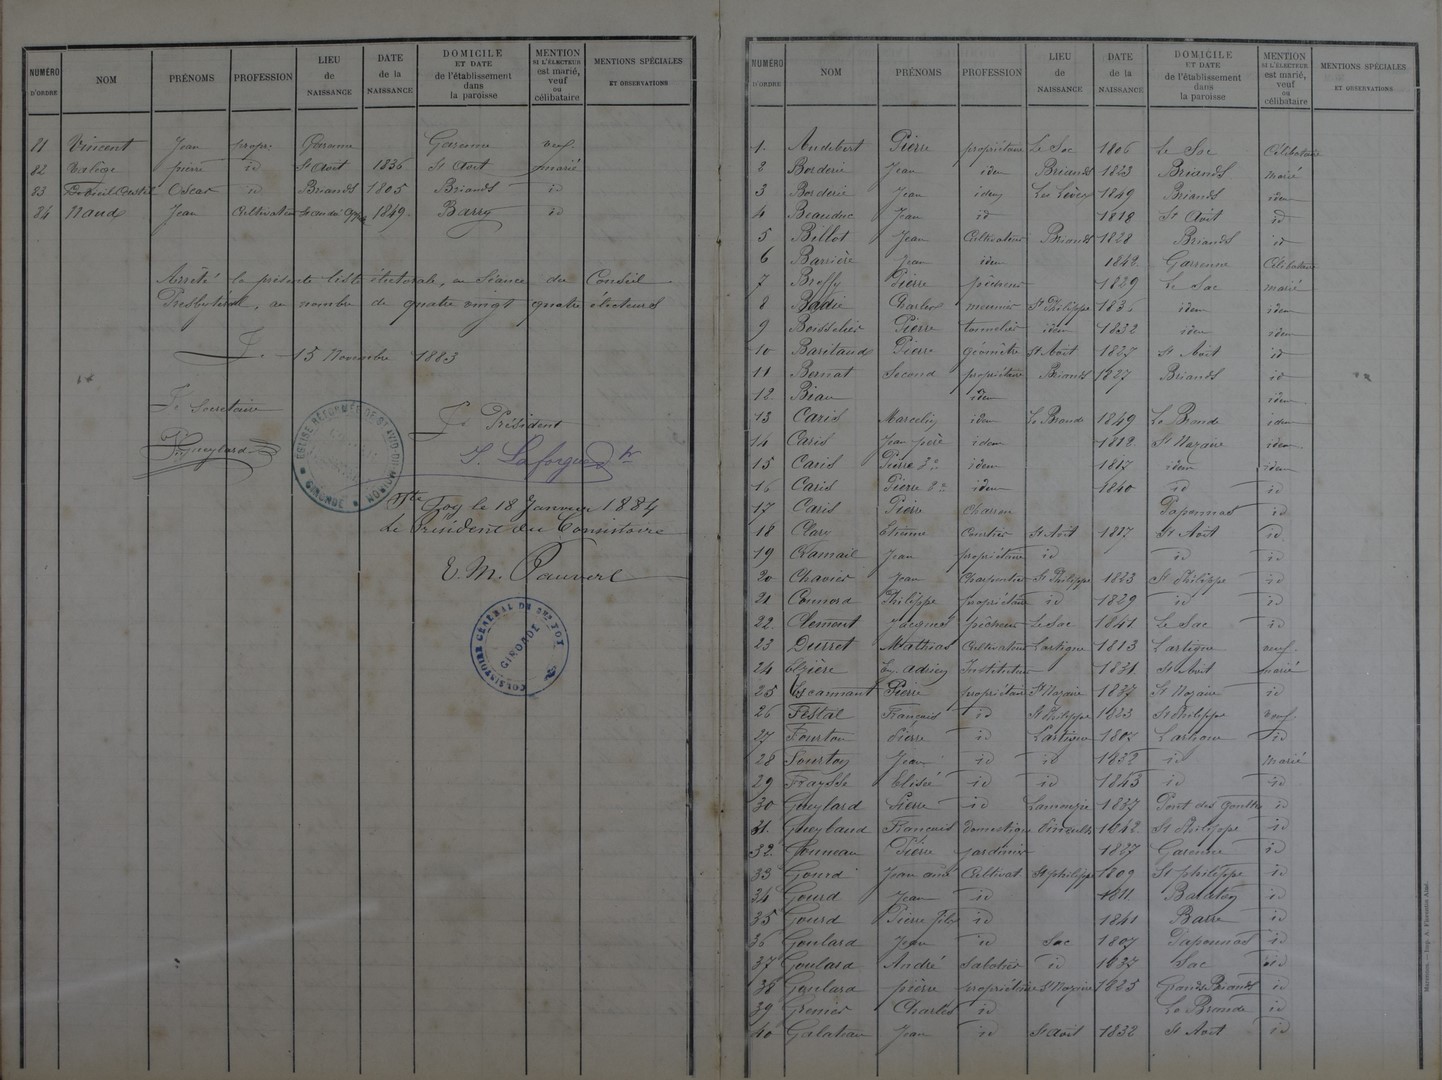 NUMÉRO D'ORDRE NOM PRÉNOMS PROFESSION LIEU de NAISSANCE DATE de la NAISSANCE DOMICILE ET DATE de l'établissement dans la paroisse MENTION SI L'ÉLECTEUR est marié, veuf ou célibataire MENTIONS SPÉCIALES ET OBSERVATIONS
81 Vincent Jean propr. Garenne Garenne veuf
82 Valiège pierre id St Avit 1836 St Avit marié
83 Oscar id Briands 1805 Briands id
84 Naud Jean Cultivateur 1849 Barry id
Arrêté la présente liste électorale, en Séance du Conseil
Presbytéral, au nombre de quatre vingt quatre électeurs
Le 15 Novembre 1883
Le Secrétaire
Le Président
P. Gueylard
J. Laforgue
EGLISE RÉFORMÉE DE ST AVIT-DU-MOIRON
GIRONDE
Ste Foy le 18 Janvier 1884
Le Président du Consistoire
E. M. Pauvert
CONSISTOIRE GÉNÉRAL DE STE FOY
GIRONDE
NUMÉRO D'ORDRE NOM PRÉNOMS PROFESSION LIEU de NAISSANCE DATE de la NAISSANCE DOMICILE ET DATE de l'établissement dans la paroisse MENTION SI L'ÉLECTEUR est marié, veuf ou célibataire MENTIONS SPÉCIALES ET OBSERVATIONS
1 Audebert Pierre propriétaire Le Sac 1806 Le Sac Célibataire
2 Borderie Jean idem Briands 1823 Briands marié
3 Borderie Jean idem Les Lèves 1849 Briands idem
4 Beauduc Jean id 1818 St Avit id
5 Billot Jean Cultivateur Briands 1828 Briands id
6 Barrière Jean idem 1842 Garenne Célibataire
7 Pierre pêcheur 1829 Le Sac marié
8 Badie Charles meunier St Philippe 1836 idem idem
9 Boisselier Pierre tonnelier idem 1832 idem idem
10 Baritaud Pierre géomètre St Avit 1827 St Avit id
11 Bernat Second propriétaire Briands 1827 Briands id
12 Biau idem idem
13 Caris Marcelin idem La Brande 1849 La Brande idem
14 Caris Jean père idem 1812 St Nazaire idem
15 Caris Pierre idem 1817 idem idem
16 Caris Pierre 2e idem 1840 id id
17 Caris Pierre Charron Daponnat id
18 Clary Etienne Courtier St Avit 1817 St Avit id
19 Jean propriétaire id id id
20 Chavier Jean Charpentier St Philippe 1823 St Philippe id
21 Counord Philippe propriétaire id 1829 id id
22 Clément Jacques pêcheur Le Sac 1841 Le Sac id
23 Durret Mathias Cultivateur Lartigue 1813 Lartigue veuf
24 Elzière Instituteur 1831 St Avit marié
25 Escarmant Pierre propriétaire St Nazaire 1837 St Nazaire id
26 Festal François id St Philippe 1823 St Philippe veuf
27 Fourton Pierre id Lartigue 1807 Lartigue id
28 Fourton Jean id id 1832 id marié
29 Fraysse Elisée id id 1843 id id
30 Gueylard Pierre id Lamonzie 1837 Pont des id
31 Gueybaud François domestique 1842 St Philippe id
32 Gouneau Pierre jardinier 1827 Garenne id
33 Gourd Jean ainé Cultivat St philippe 1809 St philippe id
34 Gourd Jean id 1811 id
35 Gourd Pierre fils id 1841 Barre id
36 Goulard Jean id Sac 1807 Daponnat id
37 Goulard André Sabotier id 1837 Sac id
38 Goulard pierre propriétaire St Nazaire 1825 Grands Briands id
39 Grenier Charles id La Brande id
40 Galateau Jean id St Avit 1832 St Avit id